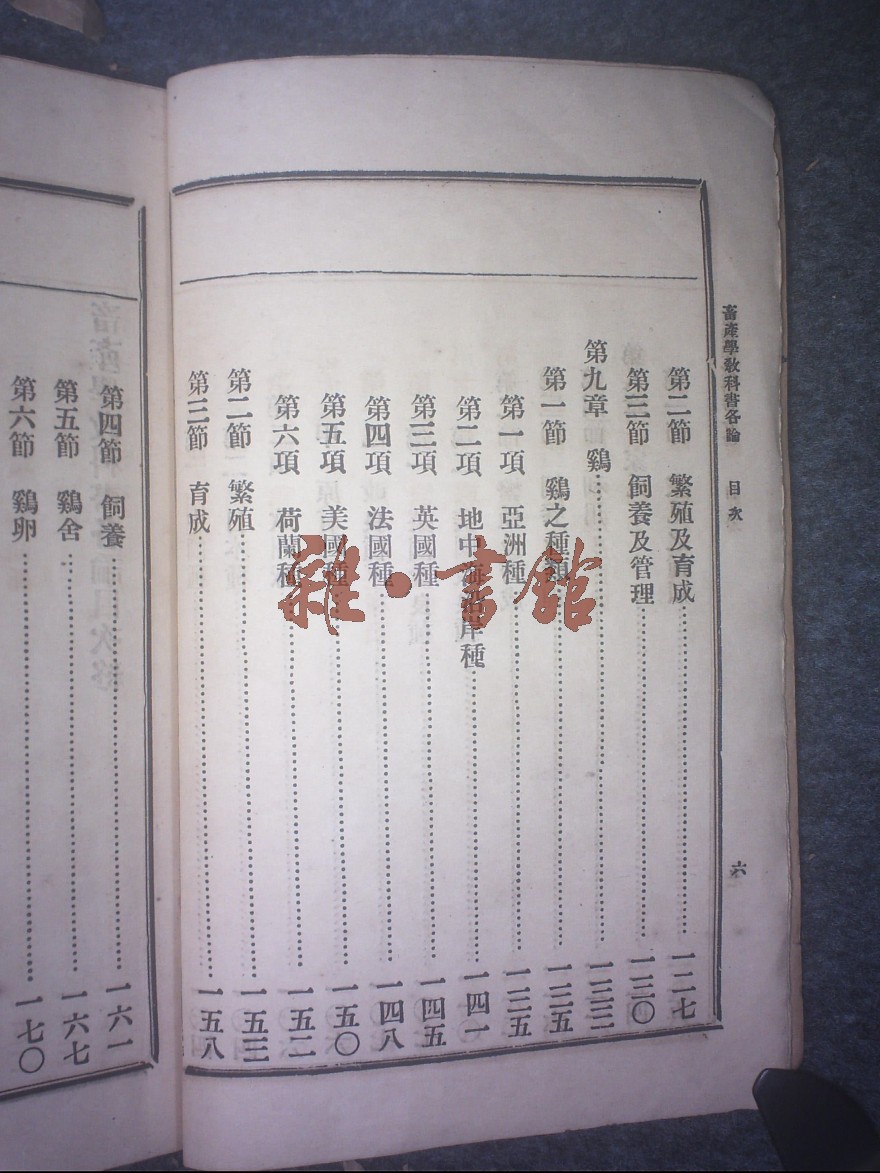 畜產學敎科書各論 目次 六
第二節 繁殖及育成 一二七
第三節 飼養及管理 一三〇
第九章 鷄 一三三
第一節 鷄之種類 一三五
第一項 亞洲種 一三五
第二項 地中海沿岸種 一四一
第三項 英國種 一四五
第四項 法國種 一四八
第五項 美國種 一五〇
第六項 荷蘭種 一五二
第二節 繁殖 一五三
第三節 育成 一五八
第四節 飼養 一六一
第五節 鷄舍 一六七
第六節 鷄卵 一七〇
雜·書館